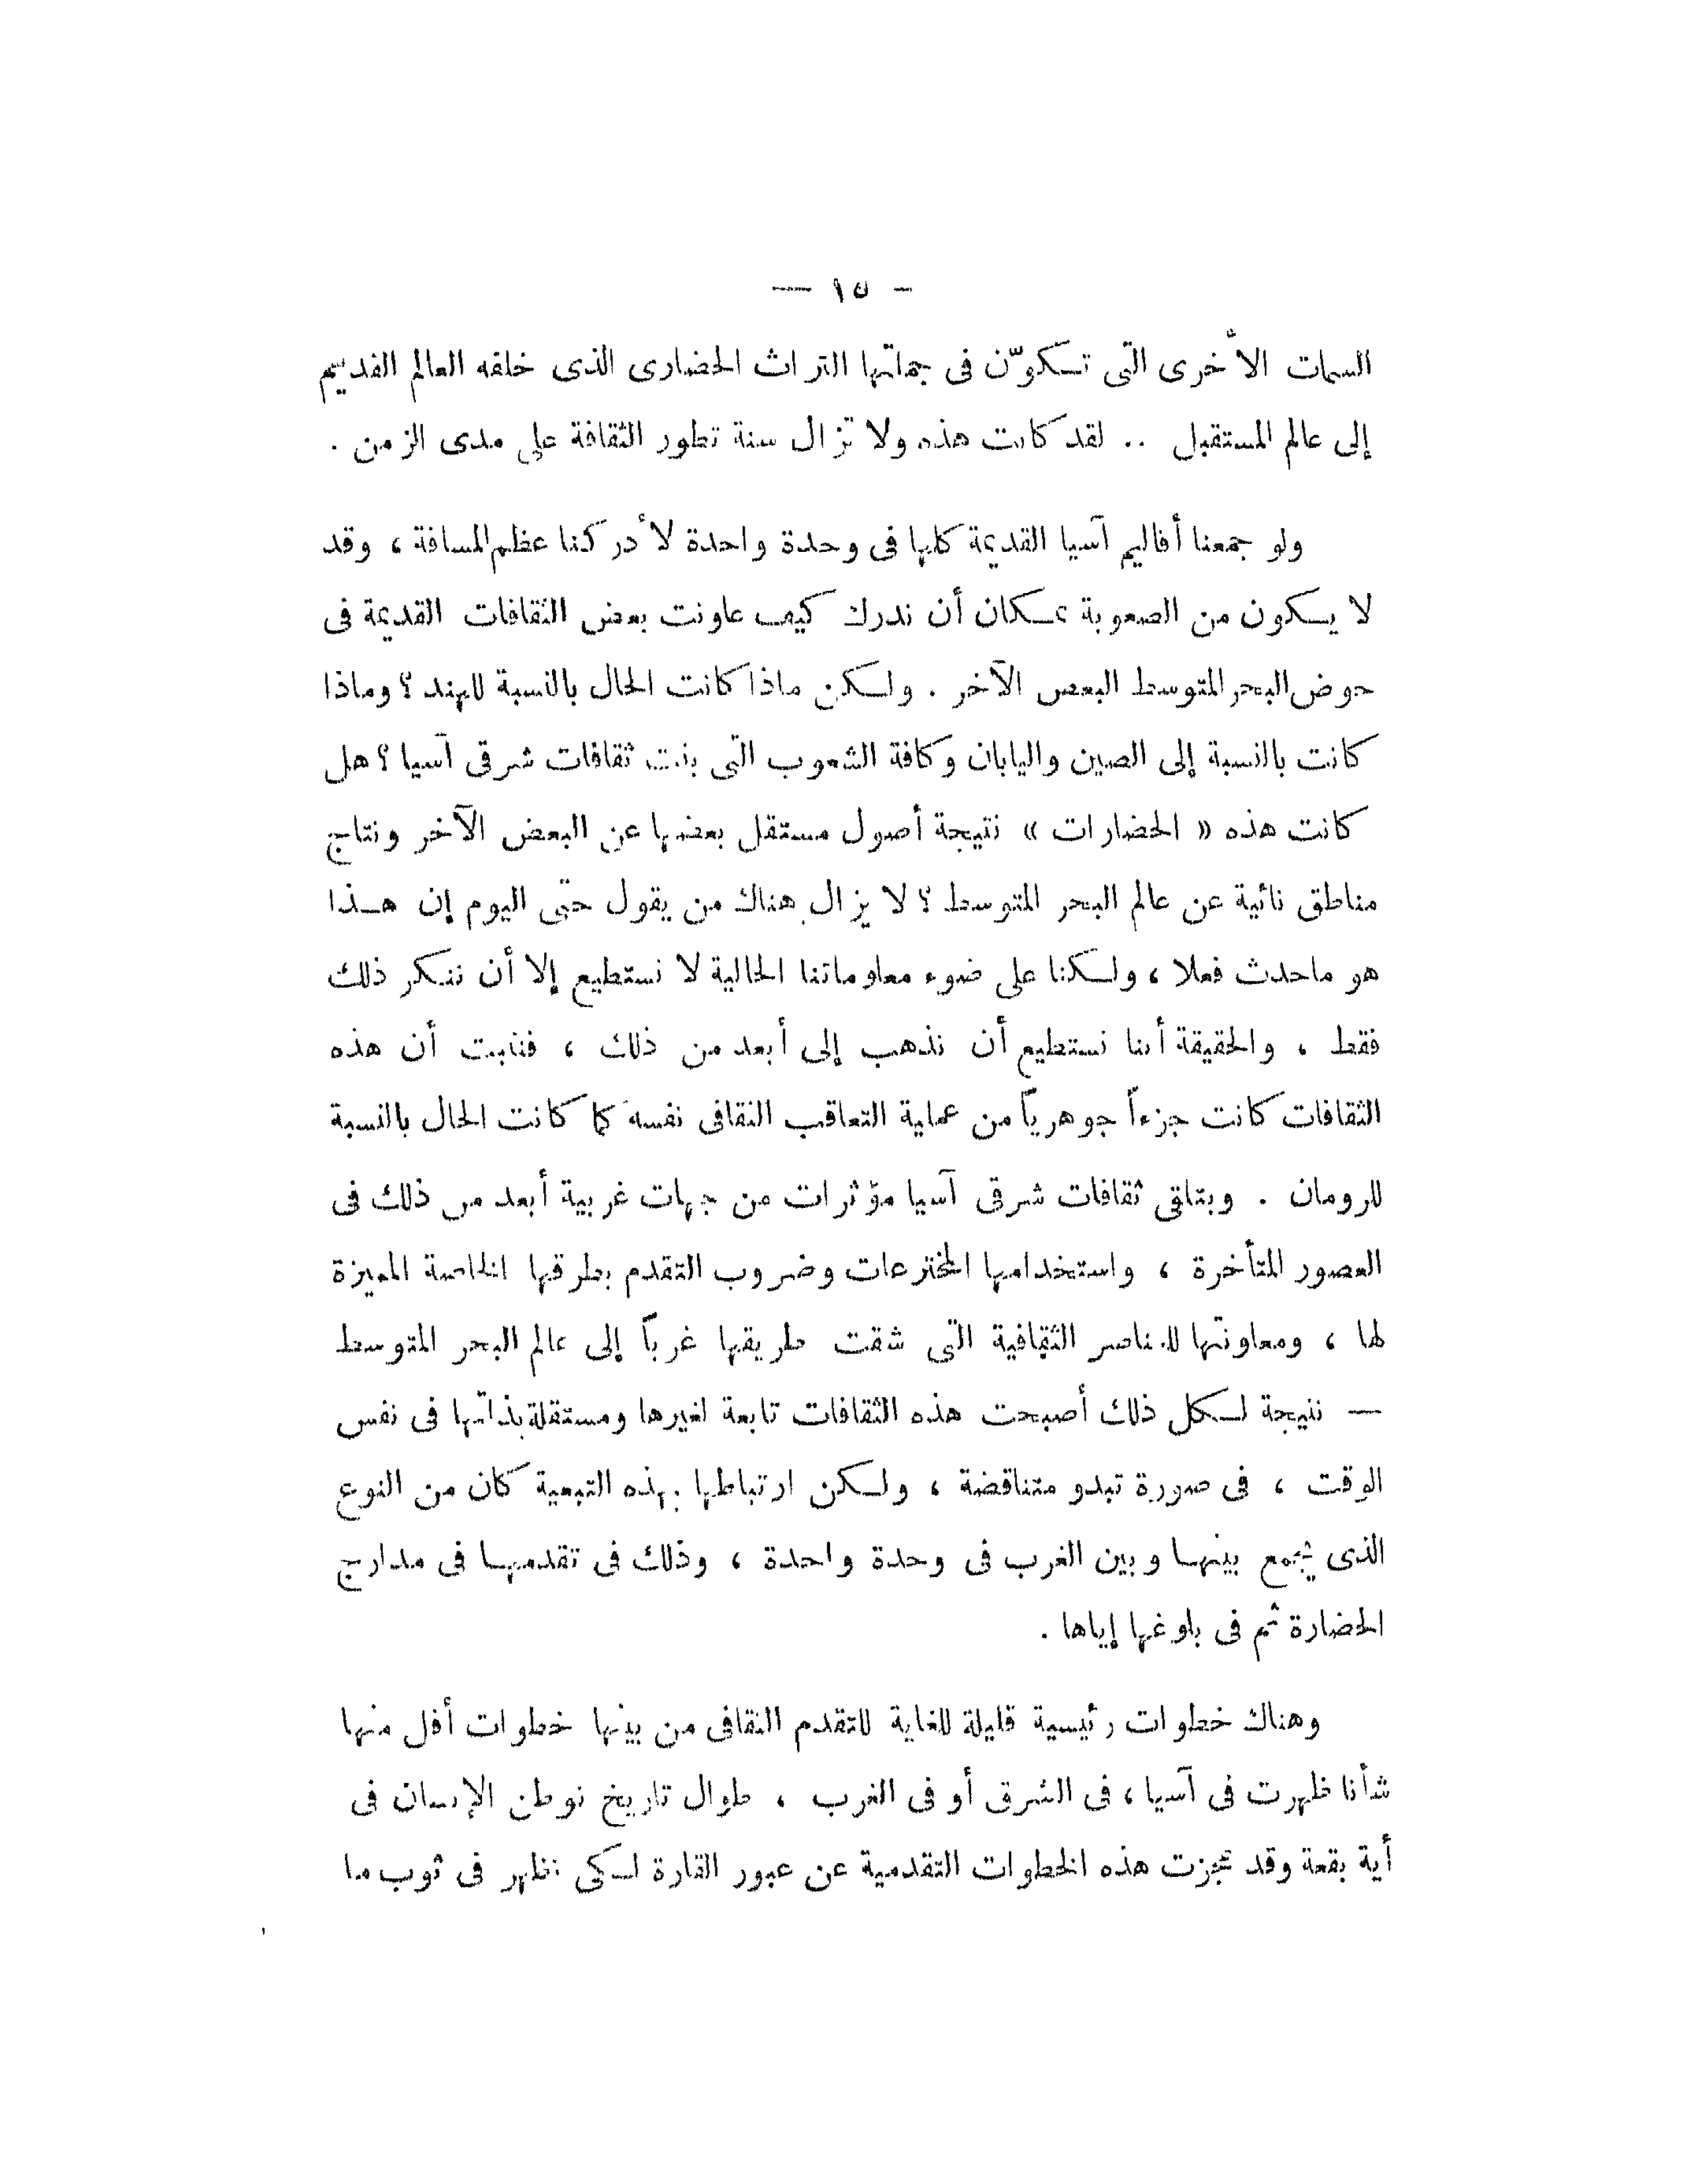 — ١٥ —
السمات الأخرى التى تكوّن فى جملتها التراث الحضارى الذى خلفه العالم القديم
إلى عالم المستقبل .. لقد كانت هذه ولا تزال سنة تطور الثقافة على مدى الزمن .
ولو جمعنا أقاليم آسيا القديمة كلها فى وحدة واحدة لأدركنا عظم المسافة ، وقد
لا يكون من الصعوبة بمكان أن ندرك كيف عاونت بعض الثقافات القديمة فى
حوض البحر المتوسط البعض الآخر . ولكن ماذا كانت الحال بالنسبة للهند ؟ وماذا
كانت بالنسبة إلى الصين واليابان وكافة الشعوب التى بنت ثقافات شرقى آسيا ؟ هل
كانت هذه « الحضارات » نتيجة أصول مستقل بعضها عن البعض الآخر ونتاج
مناطق نائية عن عالم البحر المتوسط ؟ لا يزال هناك من يقول حتى اليوم إن هذا
هو ماحدث فعلا ، ولكنا على ضوء معلوماتنا الحالية لا نستطيع إلا أن ننكر ذلك
فقط ، والحقيقة أننا نستطيع أن نذهب إلى أبعد من ذلك ، فنثبت أن هذه
الثقافات كانت جزءاً جوهرياً من عملية التعاقب الثقافى نفسه كما كانت الحال بالنسبة
للرومان . وبتلقى ثقافات شرقى آسيا مؤثرات من جهات غربية أبعد من ذلك فى
العصور المتأخرة ، واستخدامها المخترعات وضروب التقدم بطرقها الخاصة المميزة
لها ، ومعاونتها للعناصر الثقافية التى شقت طريقها غرباً إلى عالم البحر المتوسط
— نتيجة لكل ذلك أصبحت هذه الثقافات تابعة لغيرها ومستقلة بذاتها فى نفس
الوقت ، فى صورة تبدو متناقضة ، ولكن ارتباطها بهذه التبعية كان من النوع
الذى يجمع بينها وبين الغرب فى وحدة واحدة ، وذلك فى تقدمها فى مدارج
الحضارة ثم فى بلوغها إياها .
وهناك خطوات رئيسية قليلة للغاية للتقدم الثقافى من بينها خطوات أقل منها
شأنا ظهرت فى آسيا ، فى الشرق أو فى الغرب ، طوال تاريخ توطن الإنسان فى
أية بقعة وقد عجزت هذه الخطوات التقدمية عن عبور القارة لكى تظهر فى ثوب ما